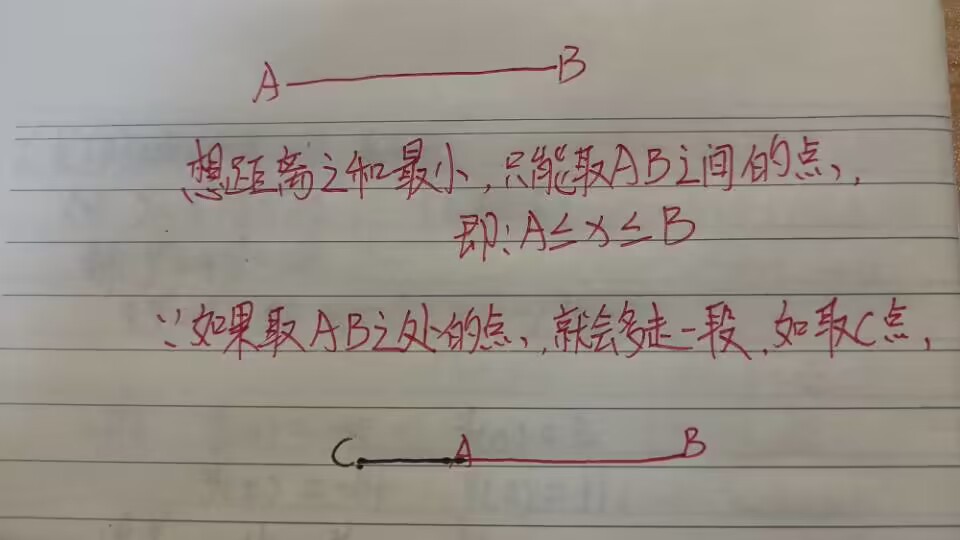 A B
想距离之和最小,只能取AB之间的点,
即:A≤x≤B
∵如果取AB之外的点,就会多走一段,如取C点,
C A B